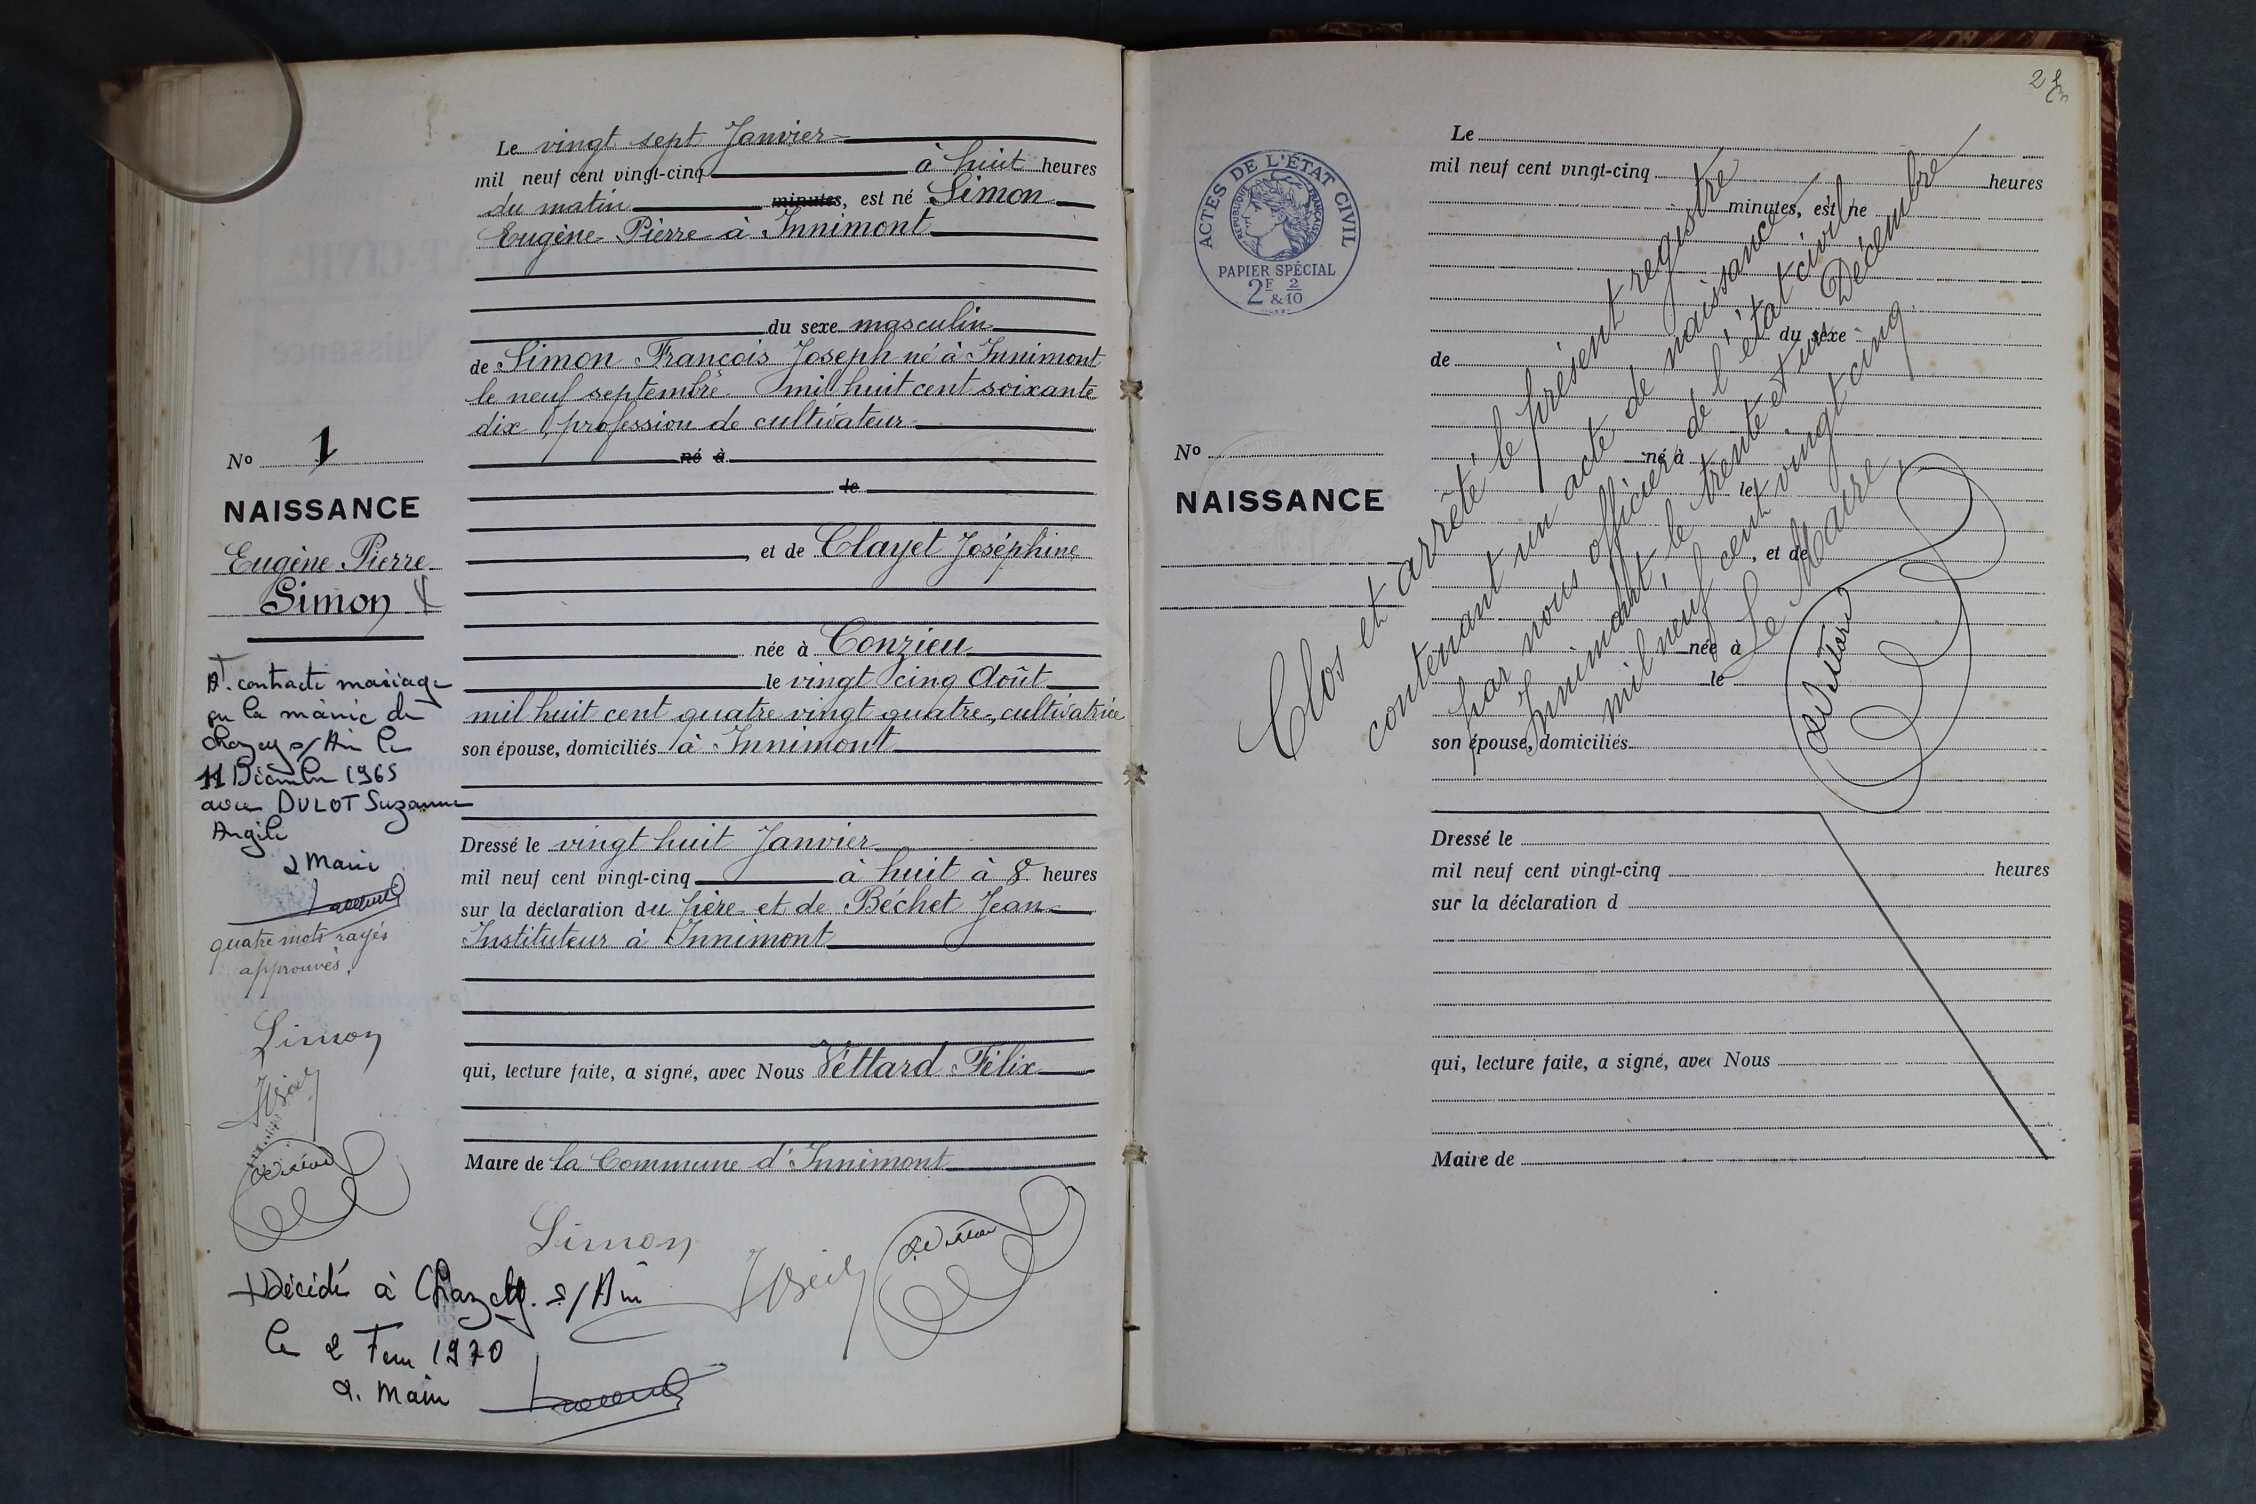 Le vingt sept Janvier
mil neuf cent vingt-cinq à huit heures
du matin minutes, est né Simon
Eugène Pierre à Innimont
du sexe masculin
de Simon François Joseph né à Innimont
le neuf septembre mil huit cent soixante
dix, profession de cultivateur
né à
le
et de Clayet Joséphine
née à Conzieu
le vingt cinq Août
mil huit cent quatre vingt quatre, cultivatrice
son épouse, domiciliés à Innimont
Dressé le vingt huit Janvier
mil neuf cent vingt-cinq à huit à 8 heures
sur la déclaration du père et de Béchet Jean
Instituteur à Innimont
qui, lecture faite, a signé, avec Nous Vettard Félix
Maire de la Commune d'Innimont
Simon
No 1
NAISSANCE
Eugène Pierre
Simon
A contracté mariage
en la mairie de
Chazey s/Ain le
11 Décembre 1965
avec DULOT Suzanne
Angèle
Maire
quatre mots rayés
approuvés.
Simon
+ Décédé à Chazey s/Ain
le 2 Fevr 1970
Maire
2
ACTES DE L'ÉTAT CIVIL
RÉPUBLIQUE FRANÇAISE
PAPIER SPÉCIAL
2F 2
& 10
No
NAISSANCE
Le
mil neuf cent vingt-cinq heures
minutes, est né
du sexe
de
né à
le
, et de
née à
le
son épouse, domiciliés
Dressé le
mil neuf cent vingt-cinq heures
sur la déclaration d
qui, lecture faite, a signé, avec Nous
Maire de
Clos et arrêté le présent registre
contenant un acte de naissance
par nous officier de l'état civil
Innimont, le trente et un Décembre
mil neuf cent vingt cinq.
Le Maire,